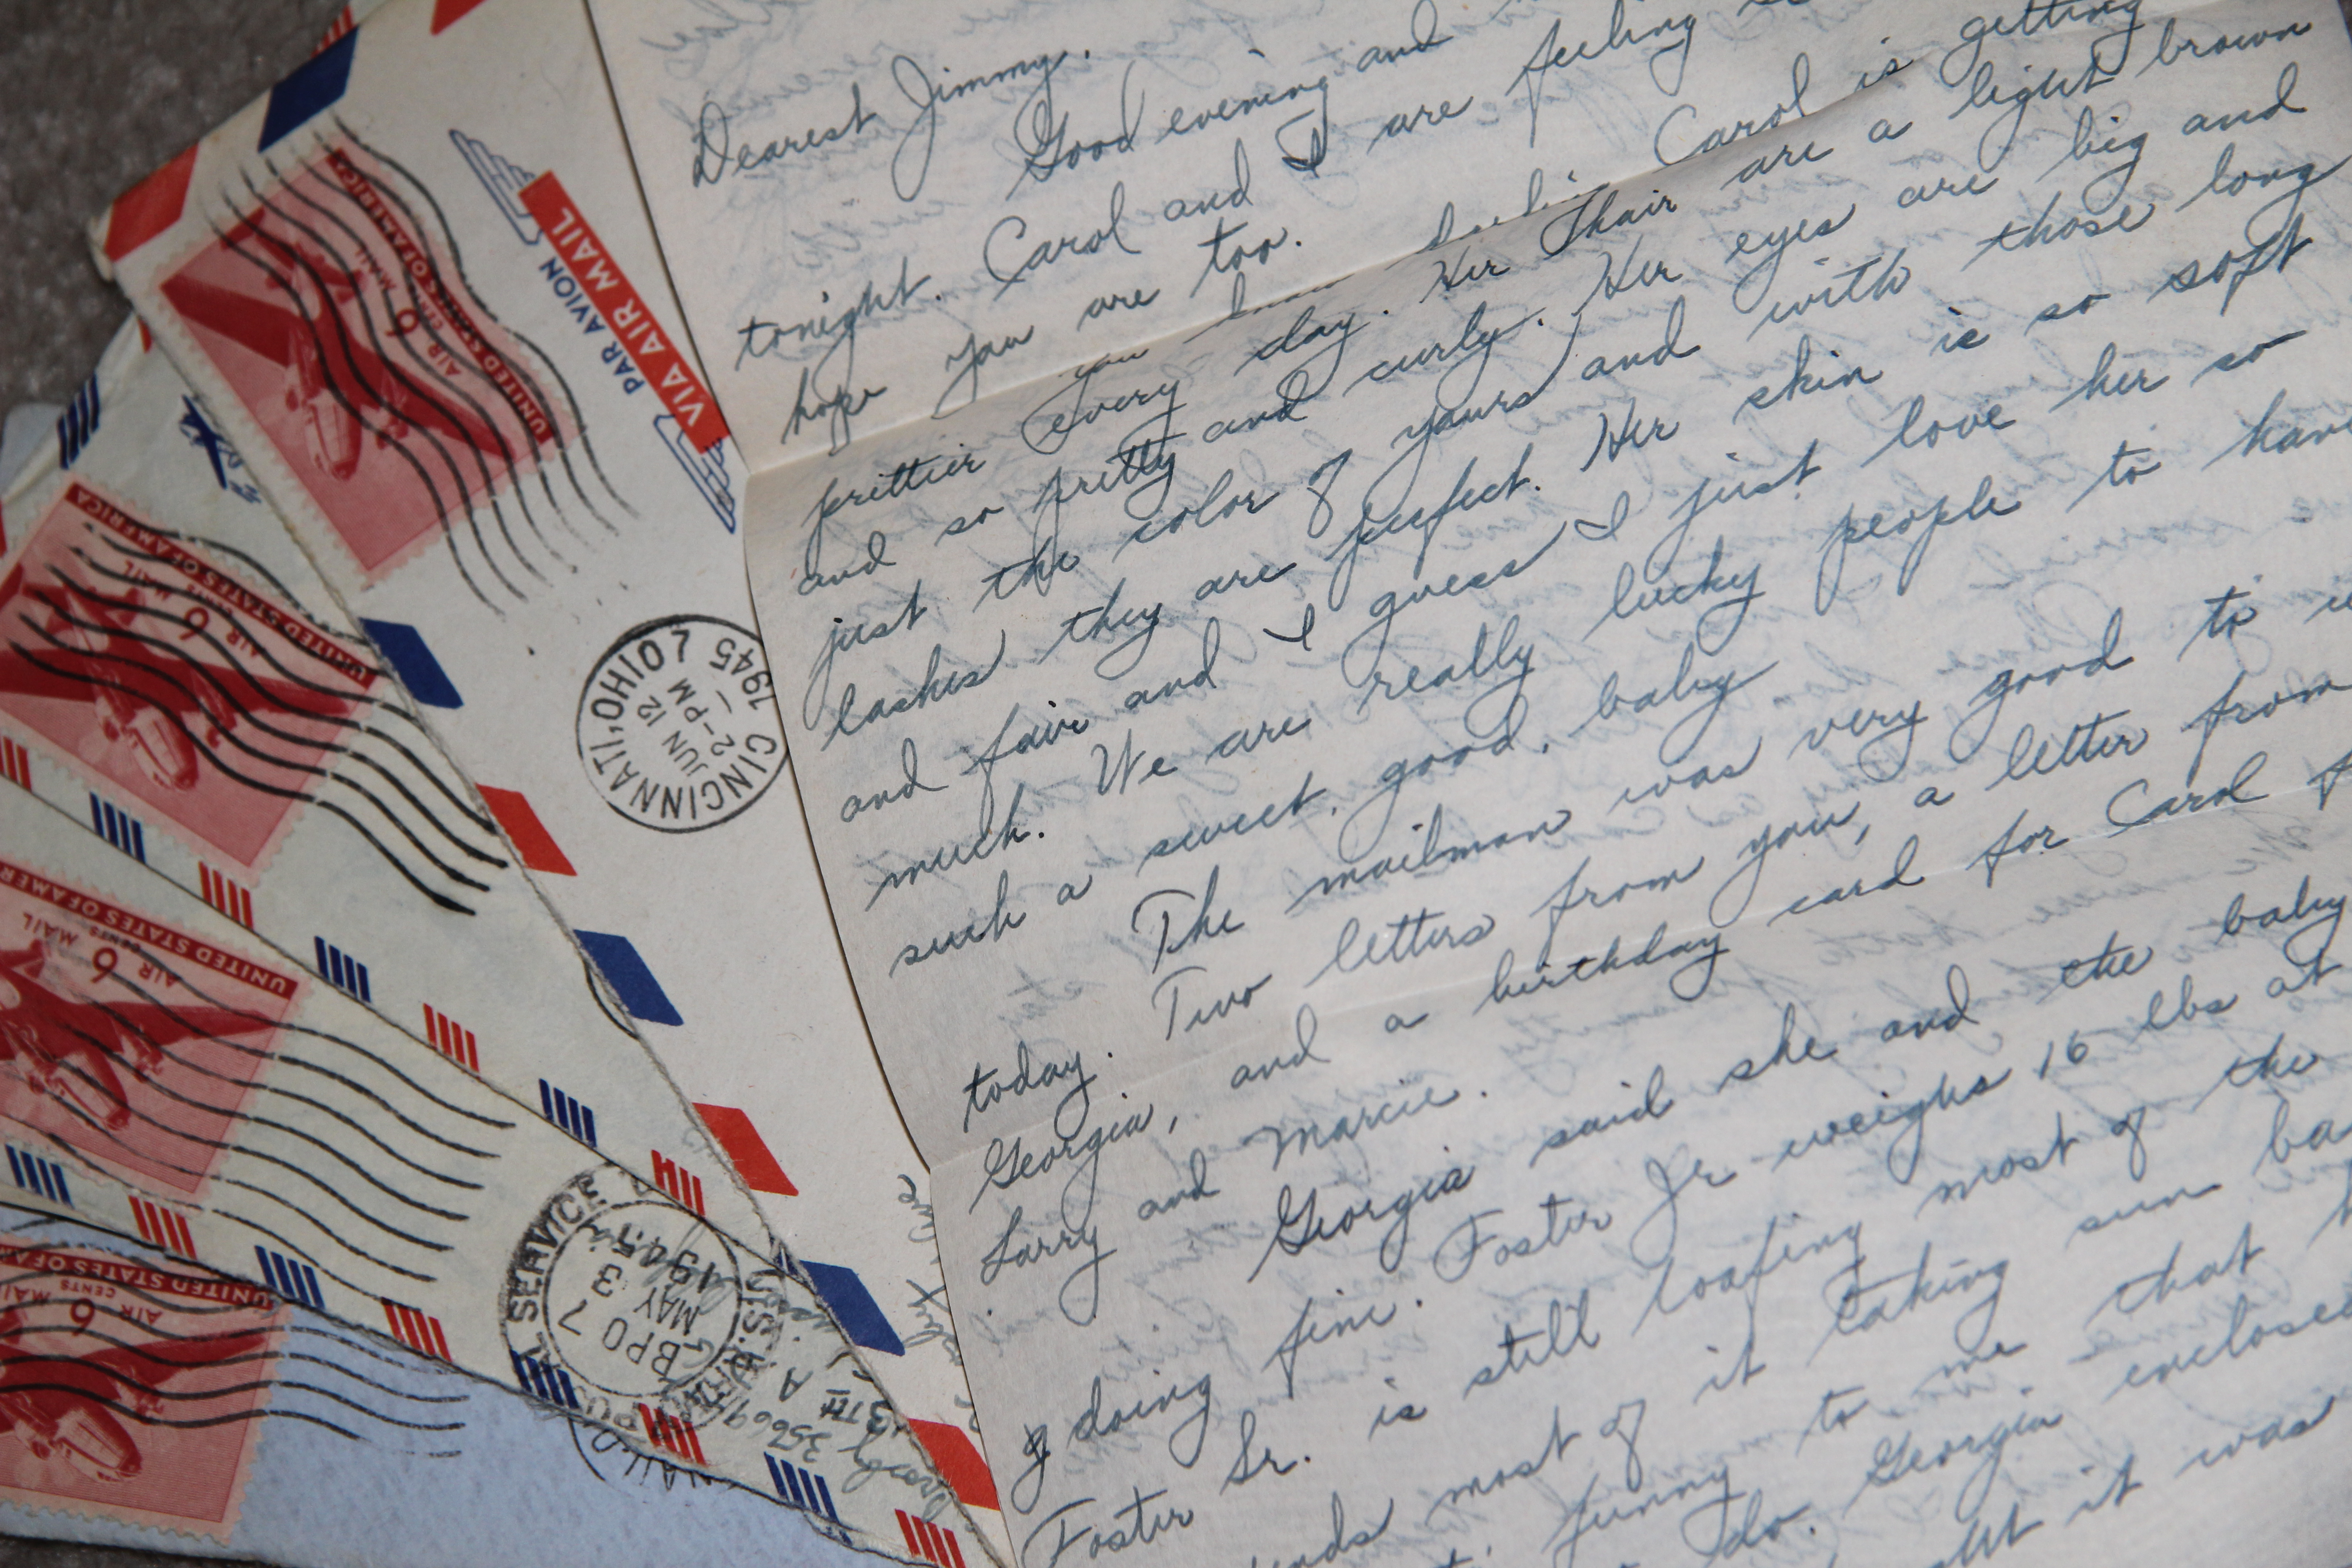 Dearest Jimmy.
Good evening and
tonight. Carol and I are feeling
hope you are too.
you know darlin Carol is getting
prettier every day. Her hair are a light brown
and so pretty and curly. Her eyes are big and
just the color of yours and with those long
lashes they are perfect. Her skin is so soft
and fair and I guess I just love her so
much. We are really lucky people to have
such a sweet, good, baby
The mailman was very good to
today. Two letters from you, a letter from
Georgia, and a birthday card for Carol
Larry and Marcie.
Georgia said she and the baby
doing fine. Foster Jr weighs 16 lbs at
Foster Sr. is still loafing most of the
most of it taking sun
funny to me that
do. Georgia enclosed
it was
UNITED STATES OF AMERICA
AIR MAIL
6 CENTS
PAR AVION
VIA AIR MAIL
CINCINNATI, OHIO 7
JUN 12
2-PM
1945
UNITED STATES OF AMERICA
AIR MAIL
6 CENTS
UNITED STATES OF AMER
AIR MAIL
6 CENTS
UNITED STATES OF A
AIR MAIL
6 CENTS
SERVICE
BPO 7
MAY
3
1945